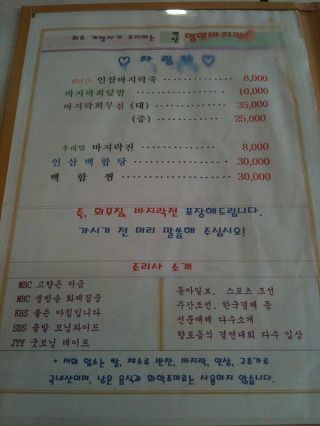 최초 개발자가 조리하는 변산 명인바지락죽
♡ 차림표 ♡
6년근 인삼바지락죽 ············· 8,000
바지락회덮밥 ············· 10,000
바지락회무침 (대) ············ 35,000
(중) ············ 25,000
우리밀 바지락전 ············· 8,000
인삼 백합탕 ············· 30,000
백 합 찜 ············· 30,000
죽, 회무침, 바지락전 포장해드립니다.
가시기 전 미리 말씀해 주십시오!
조리사 소개
MBC 고향은 지금
MBC 생방송 화제집중
KBS 좋은 아침입니다
SBS 출발 모닝와이드
JTV 굿모닝 데이트
동아일보. 스포츠 조선
주간조선. 한국경제 등
신문매체 다수소개
향토음식 경연대회 다수 입상
* 저희 업소는 쌀, 채소류 반찬, 바지락, 인삼, 고춧가루
국내산이며, 남은 음식과 화학조미료는 사용하지 않습니다.